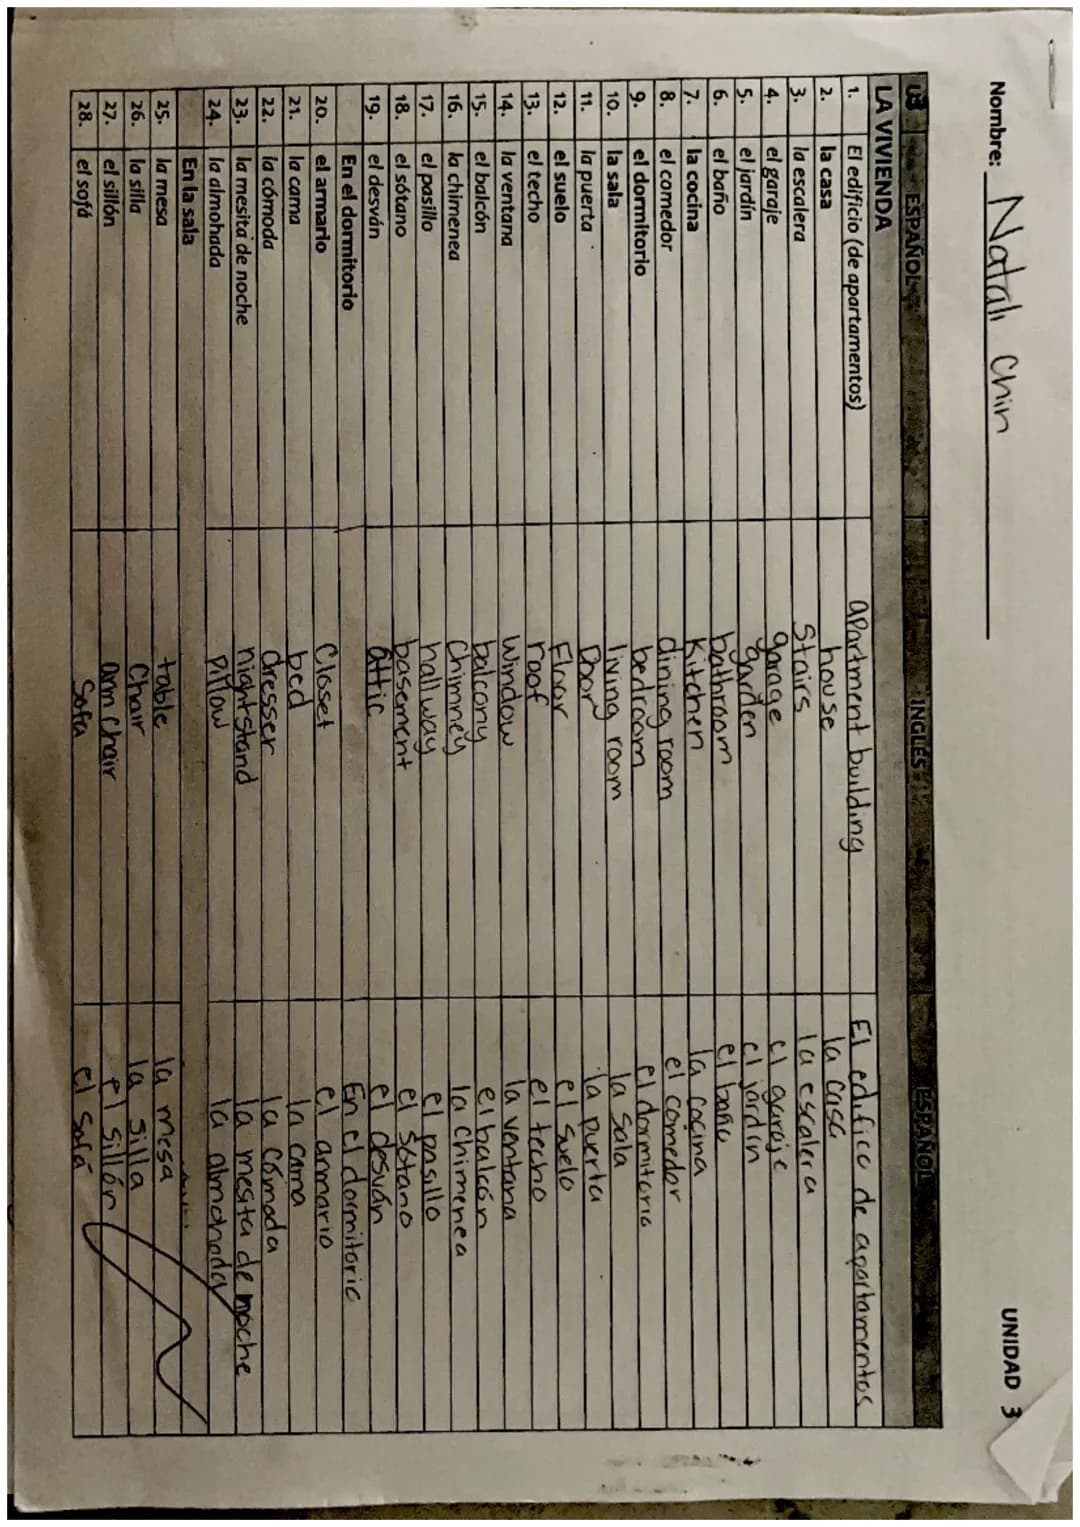 Nombre: Natali Chin UNIDAD 3
U3 ESPAÑOL INGLÉS ESPAÑOL
LA VIVIENDA
1. El edificio (de apartamentos) apartment building El edifico de apartamentos
2. la casa house la casa
3. la escalera Stairs la escalera
4. el garaje garage el garaje
5. el jardín garden el jardín
6. el baño bathroom el baño
7. la cocina Kitchen la cocina
8. el comedor dining room el comedor
9. el dormitorio bedroom el dormitorio
10. la sala living room la sala
11. la puerta Door la puerta
12. el suelo Floor el suelo
13. el techo roof el techo
14. la ventana Window la ventana
15. el balcón balcony el balcón
16. la chimenea Chimney la chimenea
17. el pasillo hallway el pasillo
18. el sótano basement el sótano
19. el desván attic el desván
En el dormitorio En el dormitorio
20. el armario Closet el armario
21. la cama bed la cama
22. la cómoda dresser la cómoda
23. la mesita de noche nightstand la mesta de noche
24. la almohada Pillow la almohada
En la sala
25. la mesa table la mesa
26. la silla Chair la silla
27. el sillón arm chair el sillón
28. el sofá Sofa el sofá